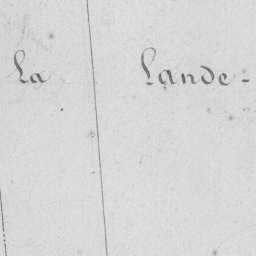 La Lande-